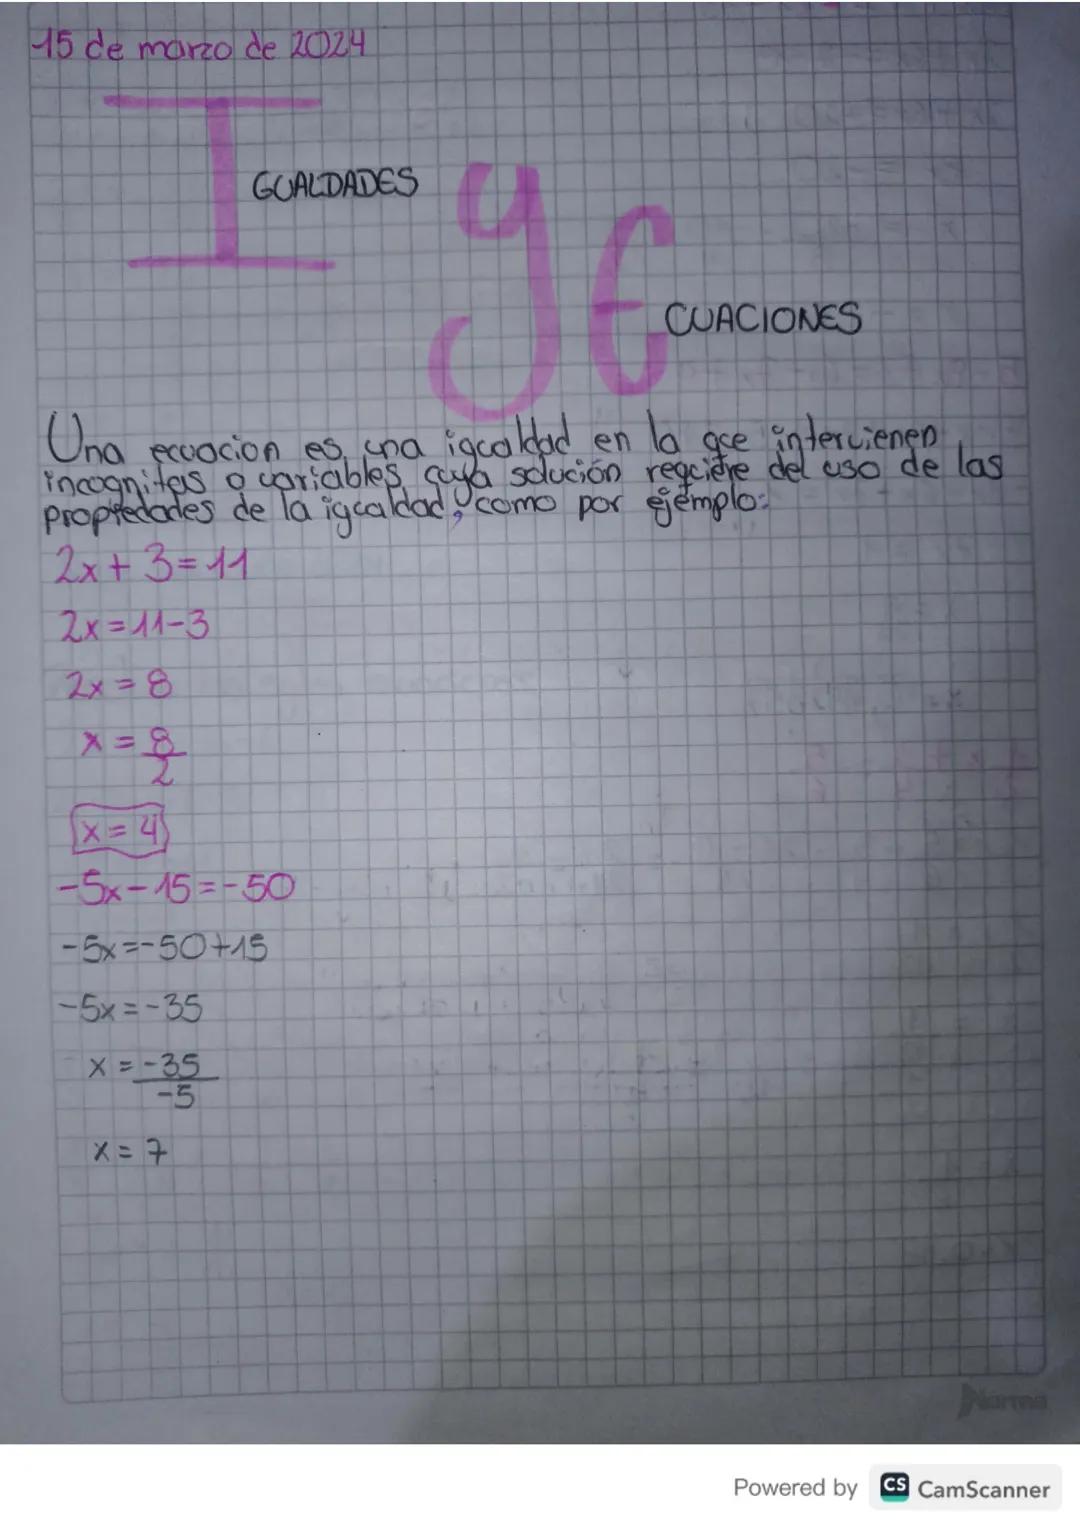 15 de marzo de 2024
IGUALDADES
y
ECUACIONES
Una ecuacion es una igualdad en la que intervienen
incognitas o variables, cuya solución requiere del uso de las
propiedades de la igualdad, como por ejemplo:
2x + 3 = 11
2x = 11-3
2x = 8
x = 8/2
x = 4
-5x - 15 = -50
-5x = -50+15
-5x = -35
x = -35/-5
x = 7
Norma
Powered by CS CamScanner